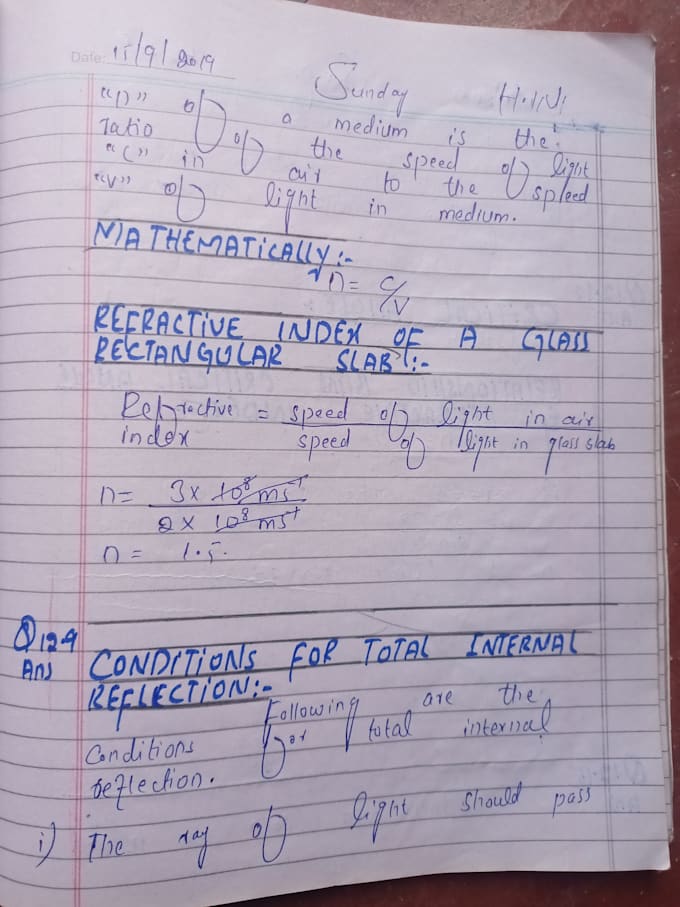 Date: 15/9/2019 Sunday H.W
"n" of a medium is the
ratio of the speed of light
"c" in air to the speed
"v" of light in medium.
MATHEMATICALLY:-
n = c/v
REFRACTIVE INDEX OF A GLASS
RECTANGULAR SLAB:-
Refractive index = speed of light in air / speed of light in glass slab
n = 3 x 10⁸ ms⁻¹ / 2 x 10⁸ ms⁻¹
n = 1.5
Q12.4
Ans CONDITIONS FOR TOTAL INTERNAL
REFLECTION:-
Following are the
Conditions for total internal
reflection.
i) The ray of light should pass